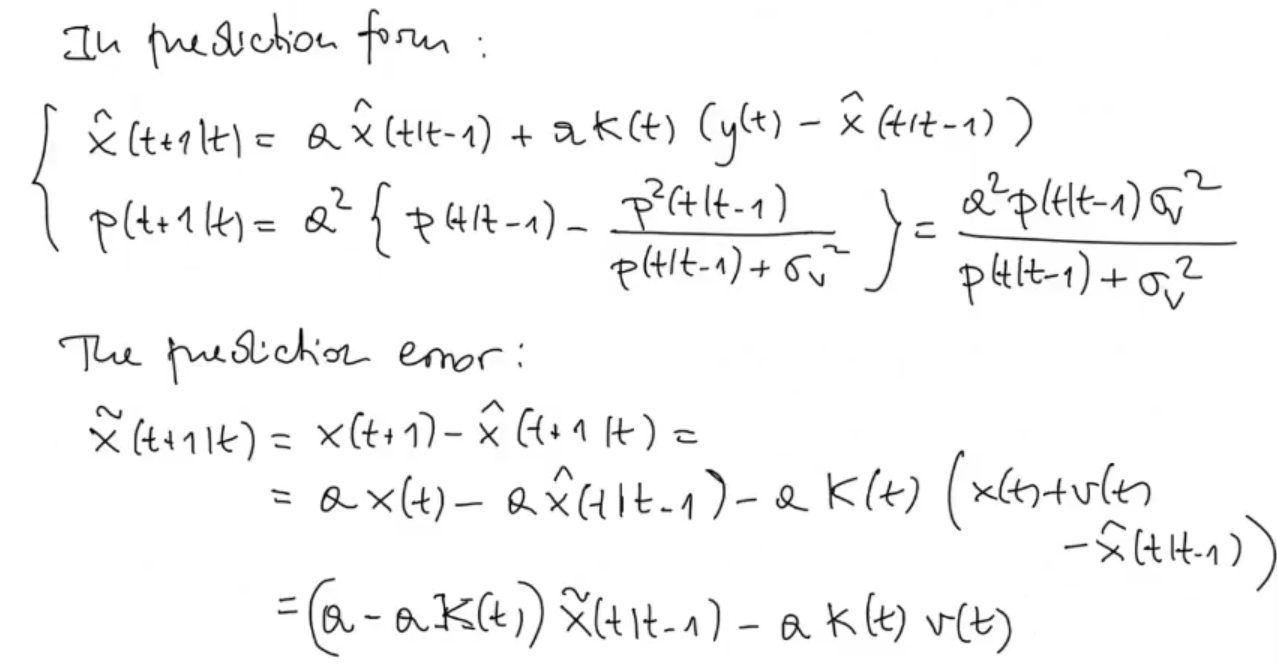 In prediction form :
x̂(t+1|t) = a x̂(t|t-1) + a K(t) (y(t) - x̂(t|t-1))
p(t+1|t) = a² { p(t|t-1) - p²(t|t-1) / (p(t|t-1) + σᵥ²) } = a² p(t|t-1) σᵥ² / (p(t|t-1) + σᵥ²)
The prediction error :
x̃(t+1|t) = x(t+1) - x̂(t+1|t) =
= a x(t) - a x̂(t|t-1) - a K(t) (x(t) + v(t)
- x̂(t|t-1))
= (a - a K(t)) x̃(t|t-1) - a K(t) v(t)